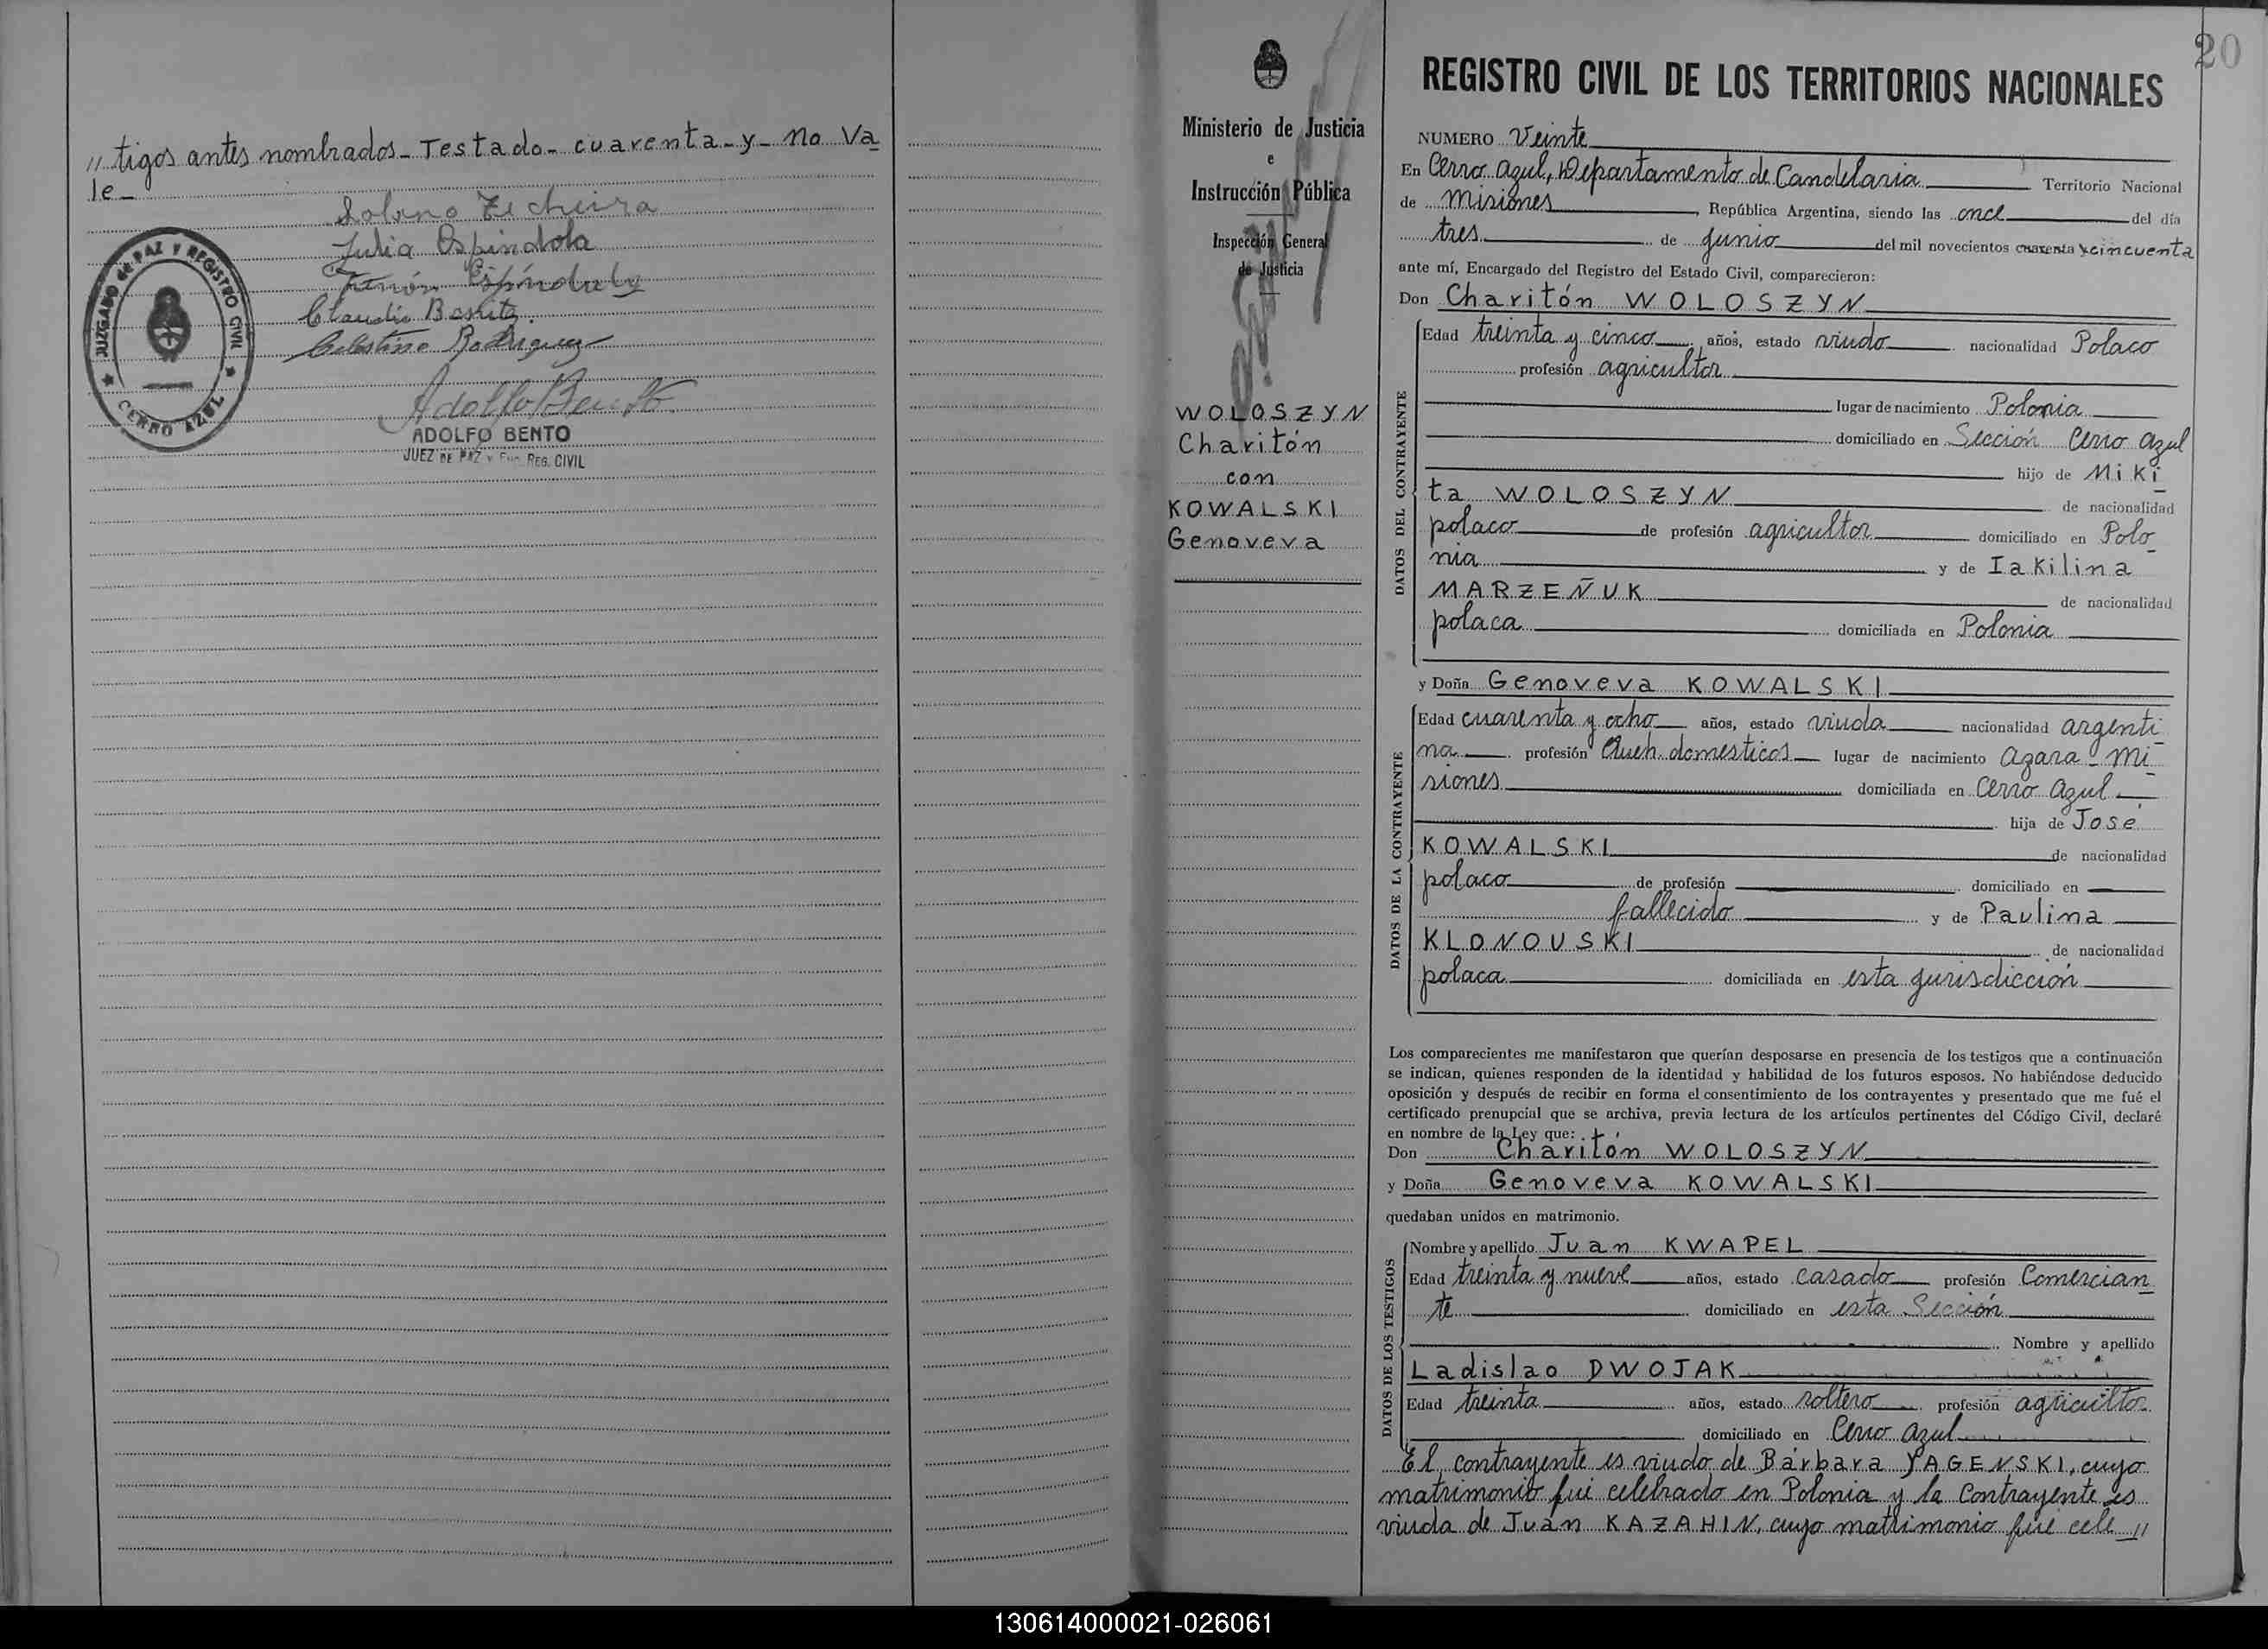 // tigos antes nombrados - Testado - cuarenta - y - no Va
le -
Solano Techeira
Julia Espindola
Claudio Basritz.
Celestino Rodriguez
Adolfo Bento
ADOLFO BENTO
JUEZ DE PAZ y Enc. REG. CIVIL
JUZGADO de PAZ Y REGISTRO CIVIL
CERRO AZUL
20
Ministerio de Justicia
e
Instrucción Pública
Inspección General
de Justicia
WOLOSZYN
Charitón
con
KOWALSKI
Genoveva
REGISTRO CIVIL DE LOS TERRITORIOS NACIONALES
NUMERO Veinte
En Cerro Azul, Departamento de Candelaria Territorio Nacional
de Misiones, República Argentina, siendo las once del día
tres de junio del mil novecientos cuarenta y cincuenta
ante mí, Encargado del Registro del Estado Civil, comparecieron:
Don Charitón WOLOSZYN
DATOS DEL CONTRAYENTE
Edad treinta y cinco años, estado viudo nacionalidad Polaco
profesión agricultor
lugar de nacimiento Polonia
domiciliado en Sección Cerro Azul
hijo de Miki
ta WOLOSZYN de nacionalidad
polaco de profesión agricultor domiciliado en Polo
nia y de Iakilina
MARZEÑUK de nacionalidad
polaca domiciliada en Polonia
y Doña Genoveva KOWALSKI
DATOS DE LA CONTRAYENTE
Edad cuarenta y ocho años, estado viuda nacionalidad argenti
na profesión Queh. domesticos lugar de nacimiento Azara - Mi
siones domiciliada en Cerro Azul
hija de José
KOWALSKI de nacionalidad
polaco de profesión domiciliado en
fallecido y de Paulina
KLONOUSKI de nacionalidad
polaca domiciliada en esta jurisdicción
Los comparecientes me manifestaron que querían desposarse en presencia de los testigos que a continuación
se indican, quienes responden de la identidad y habilidad de los futuros esposos. No habiéndose deducido
oposición y después de recibir en forma el consentimiento de los contrayentes y presentado que me fué el
certificado prenupcial que se archiva, previa lectura de los artículos pertinentes del Código Civil, declaré
en nombre de la Ley que:
Don Charitón WOLOSZYN
y Doña Genoveva KOWALSKI
quedaban unidos en matrimonio.
DATOS DE LOS TESTIGOS
Nombre y apellido Juan KWAPEL
Edad treinta y nueve años, estado casado profesión Comercian
te domiciliado en esta Sección
Nombre y apellido
Ladislao DWOJAK
Edad treinta años, estado soltero profesión agricultor
domiciliado en Cerro Azul
El contrayente es viudo de Bárbara YAGENSKI, cuyo
matrimonio fué celebrado en Polonia y la contrayente es
viuda de Juan KAZAHIN, cuyo matrimonio fué cele //
130614000021-026061